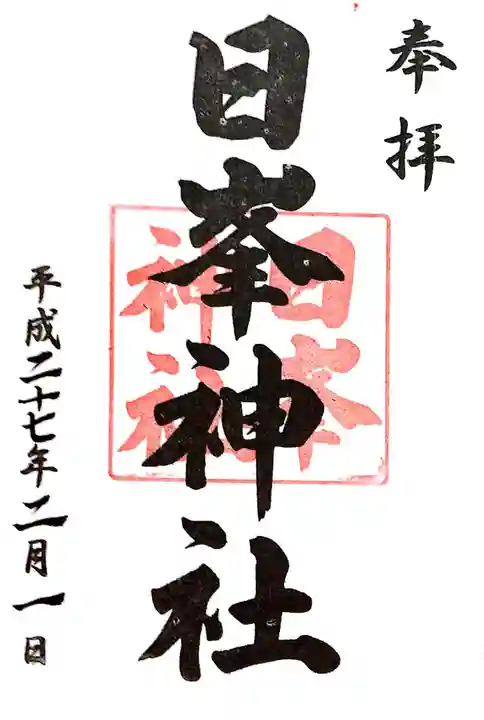 奉拝
日峯神社
日峯
神社
平成二十七年二月一日